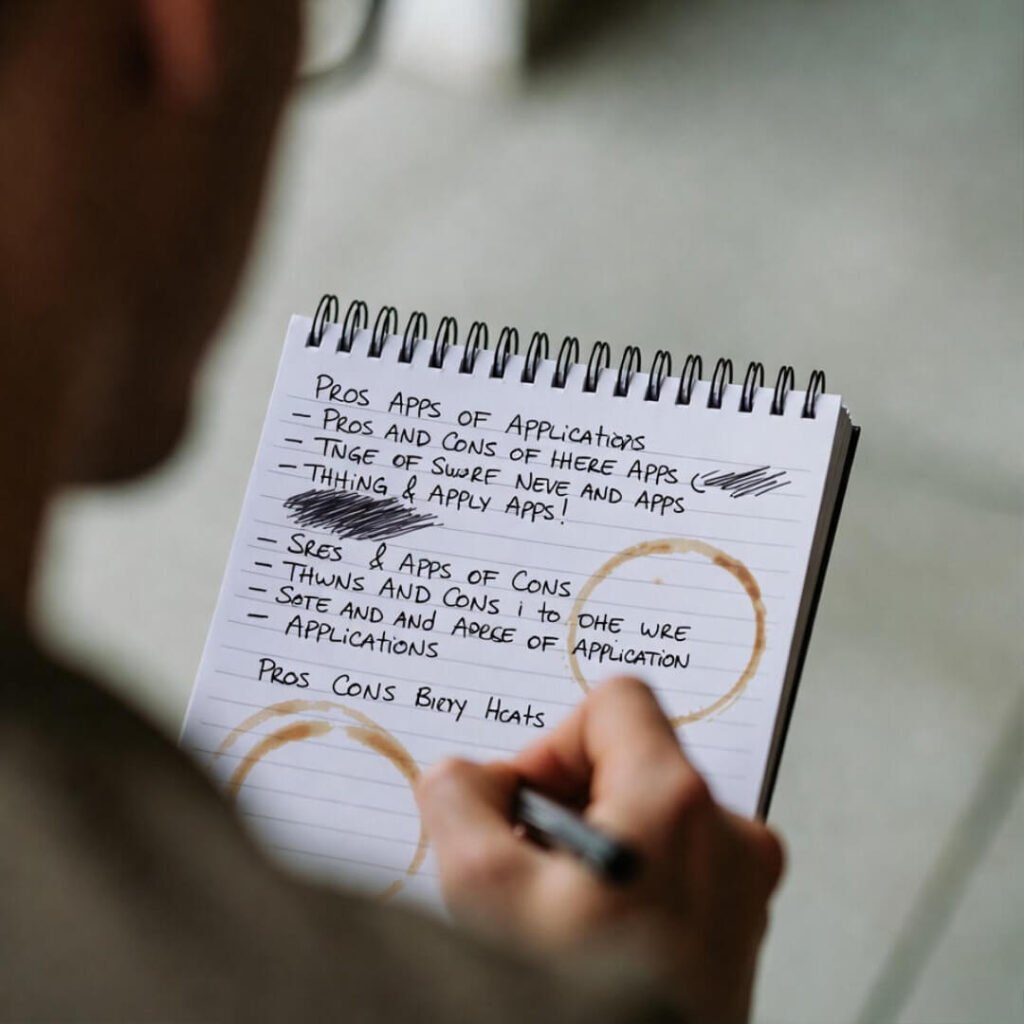 PROS APPS OF APPLICATIONS
- PROS AND CONS OF HERE APPS (
- TNGE OF SWORE NEVE AND APPS
- THHING & APPLY APPS!
- SRES & APPS OF CONS
- THWNS AND CONS i to OHE WRE
- SOTE AND AND APPLICATION OF
- APPLICATIONS
PROS CONS BIERY HCATS